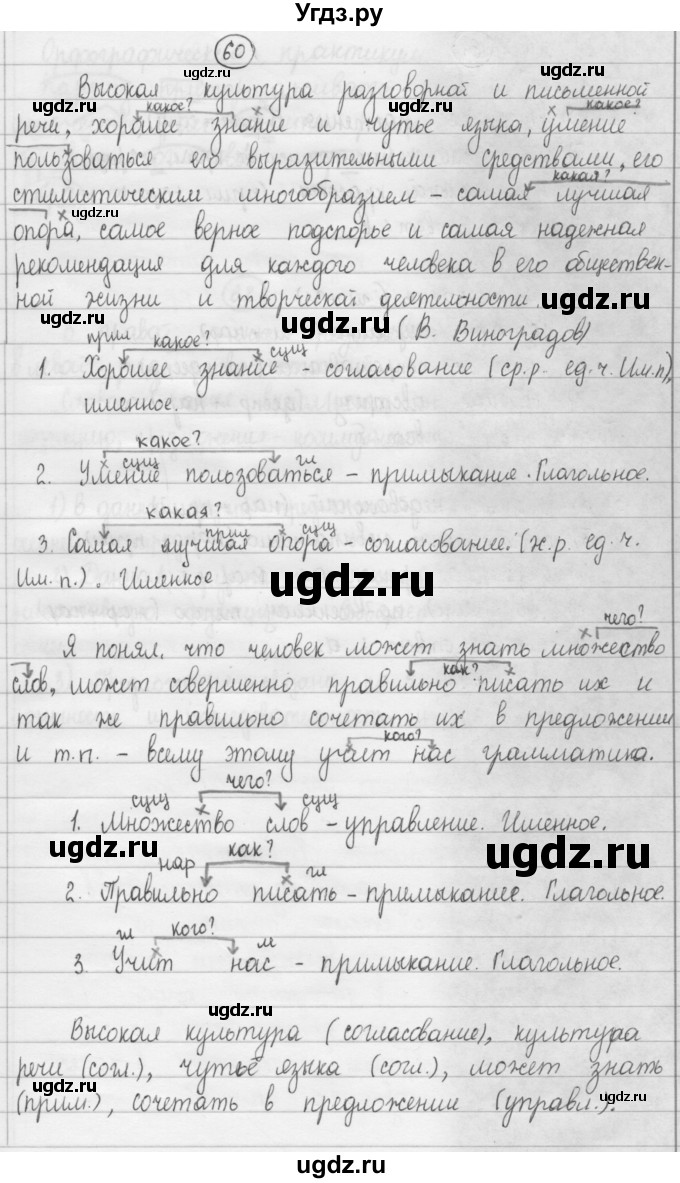 Угдз.ру
60
Высокая культура разговорной и письменной
какое? какое?
речи, хорошее знание и чутье языка, умение
пользоваться его выразительными средствами, его
какая?
стилистическим многообразием - самая лучшая
опора, самое верное подспорье и самая надежная
рекомендация для каждого человека в его обществен-
ной жизни и творческой деятельности
(В. Виноградов)
прил какое? сущ
1. Хорошее знание - согласование (ср.р. ед.ч. Им.п),
именное.
какое?
сущ гл
2. Умение пользоваться - примыкание. Глагольное.
какая?
прил сущ
3. Самая лучшая опора - согласование. (ж.р. ед.ч.
Им.п.). Именное
чего?
Я понял, что человек может знать множество
как?
слов, может совершенно правильно писать их и
так же правильно сочетать их в предложении
кого?
и т.п. - всему этому учит нас грамматика.
чего?
сущ сущ
1. Множество слов - управление. Именное.
нар как? гл
2. Правильно писать - примыкание. Глагольное.
гл кого? м
3. Учит нас - примыкание. Глагольное.
Высокая культура (согласование), культура
речи (согл.), чутьё языка (согл.), может знать
(прим.), сочетать в предложении (управл.).
ugdz.ru